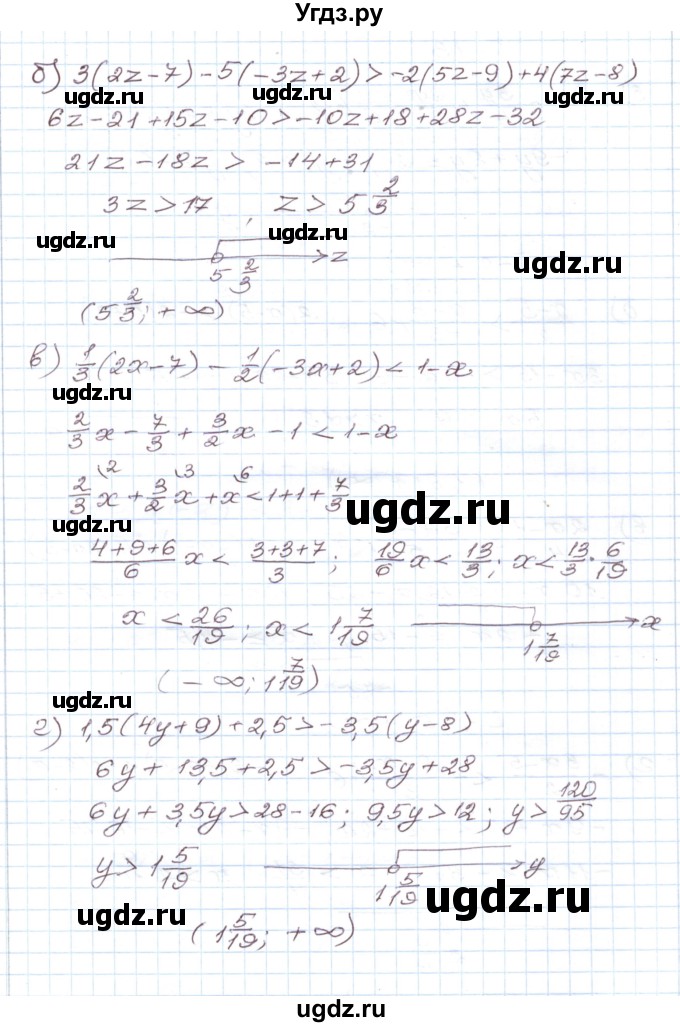 Угдз.ру
б) 3(2z-7)-5(-3z+2)>-2(5z-9)+4(7z-8)
ugdz.ru ugdz.ru ugdz.ru
6z-21+15z-10>-10z+18+28z-32
21z-18z > -14+31
3z>17, z > 5 2/3
ugdz.ru ugdz.ru
z
ugdz.ru
5 2/3
(5 2/3; +∞)
в) 1/3(2x-7) - 1/2(-3x+2) < 1-x
ugdz.ru
2/3x - 7/3 + 3/2x - 1 < 1-x
2 3 6
2/3x + 3/2x + x < 1+1+ 7/3
ugdz.ru
ugdz.ru
(4+9+6)/6 x < (3+3+7)/3; 19/6x < 13/3; x < 13/3 · 6/19
x < 26/19; x < 1 7/19
x
1 7/19
(-∞; 1 7/19)
ugdz.ru
г) 1,5(4y+9)+2,5>-3,5(y-8)
6y+13,5+2,5>-3,5y+28
6y+3,5y>28-16; 9,5y>12; y> 120/95
y> 1 5/19
y
1 5/19
ugdz.ru ugdz.ru
(1 5/19; +∞)
ugdz.ru